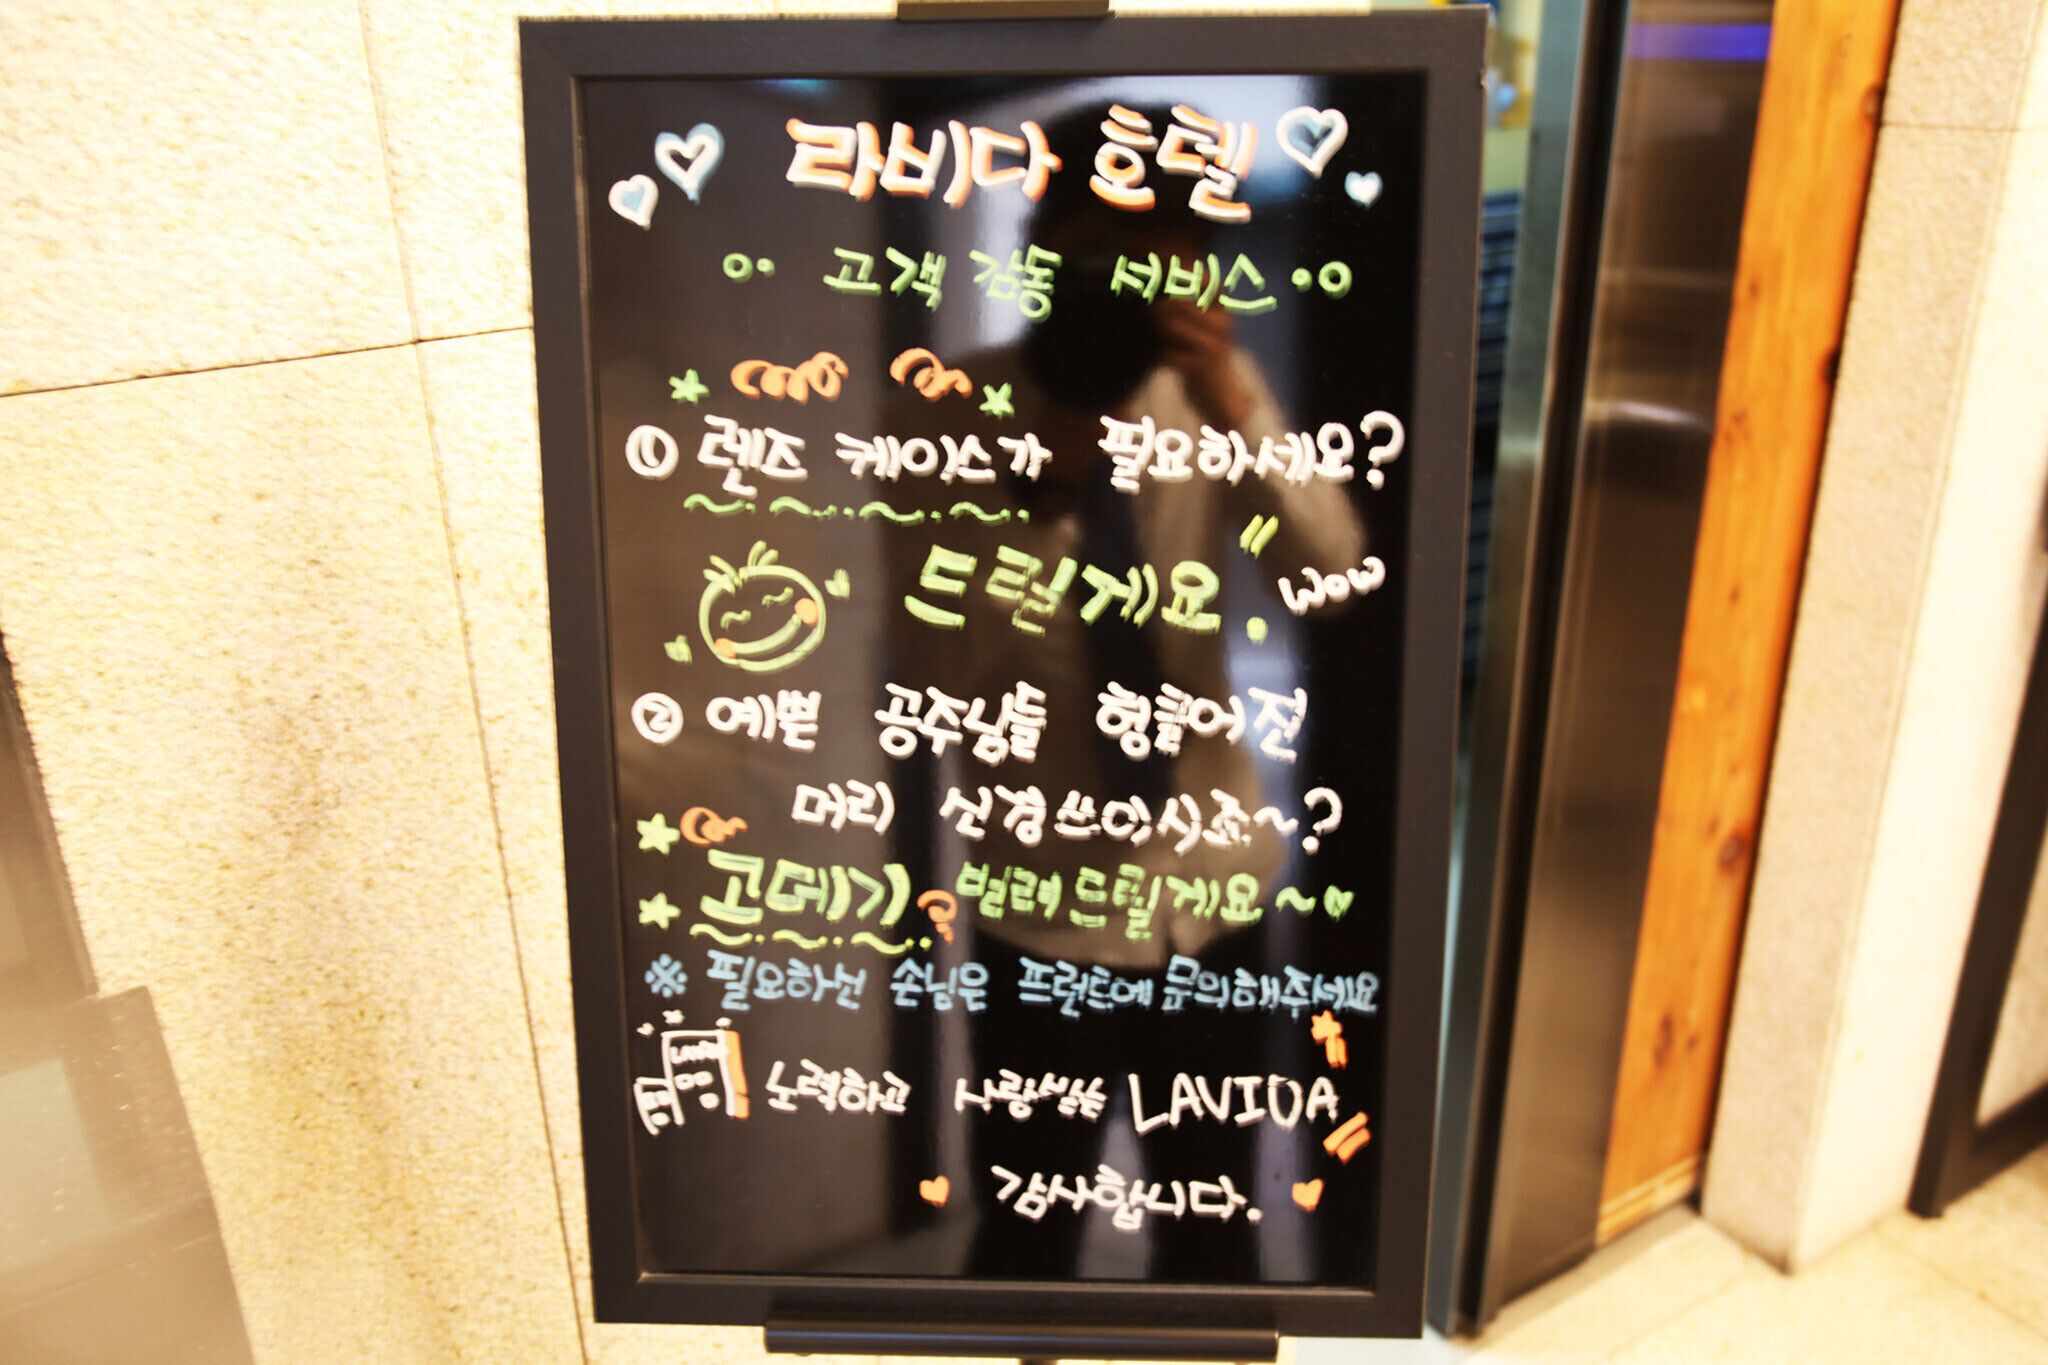 라비다 호텔
고객 감동 서비스
① 렌즈 케이스가 필요하세요?
드릴게요. wow
② 예쁜 공주님들 헝클어진
머리 신경쓰이시죠~?
고데기 빌려드릴게요~
※ 필요하신 손님은 프런트에 문의해주세요
노력하고 사랑실은 LAVIDA
감사합니다.